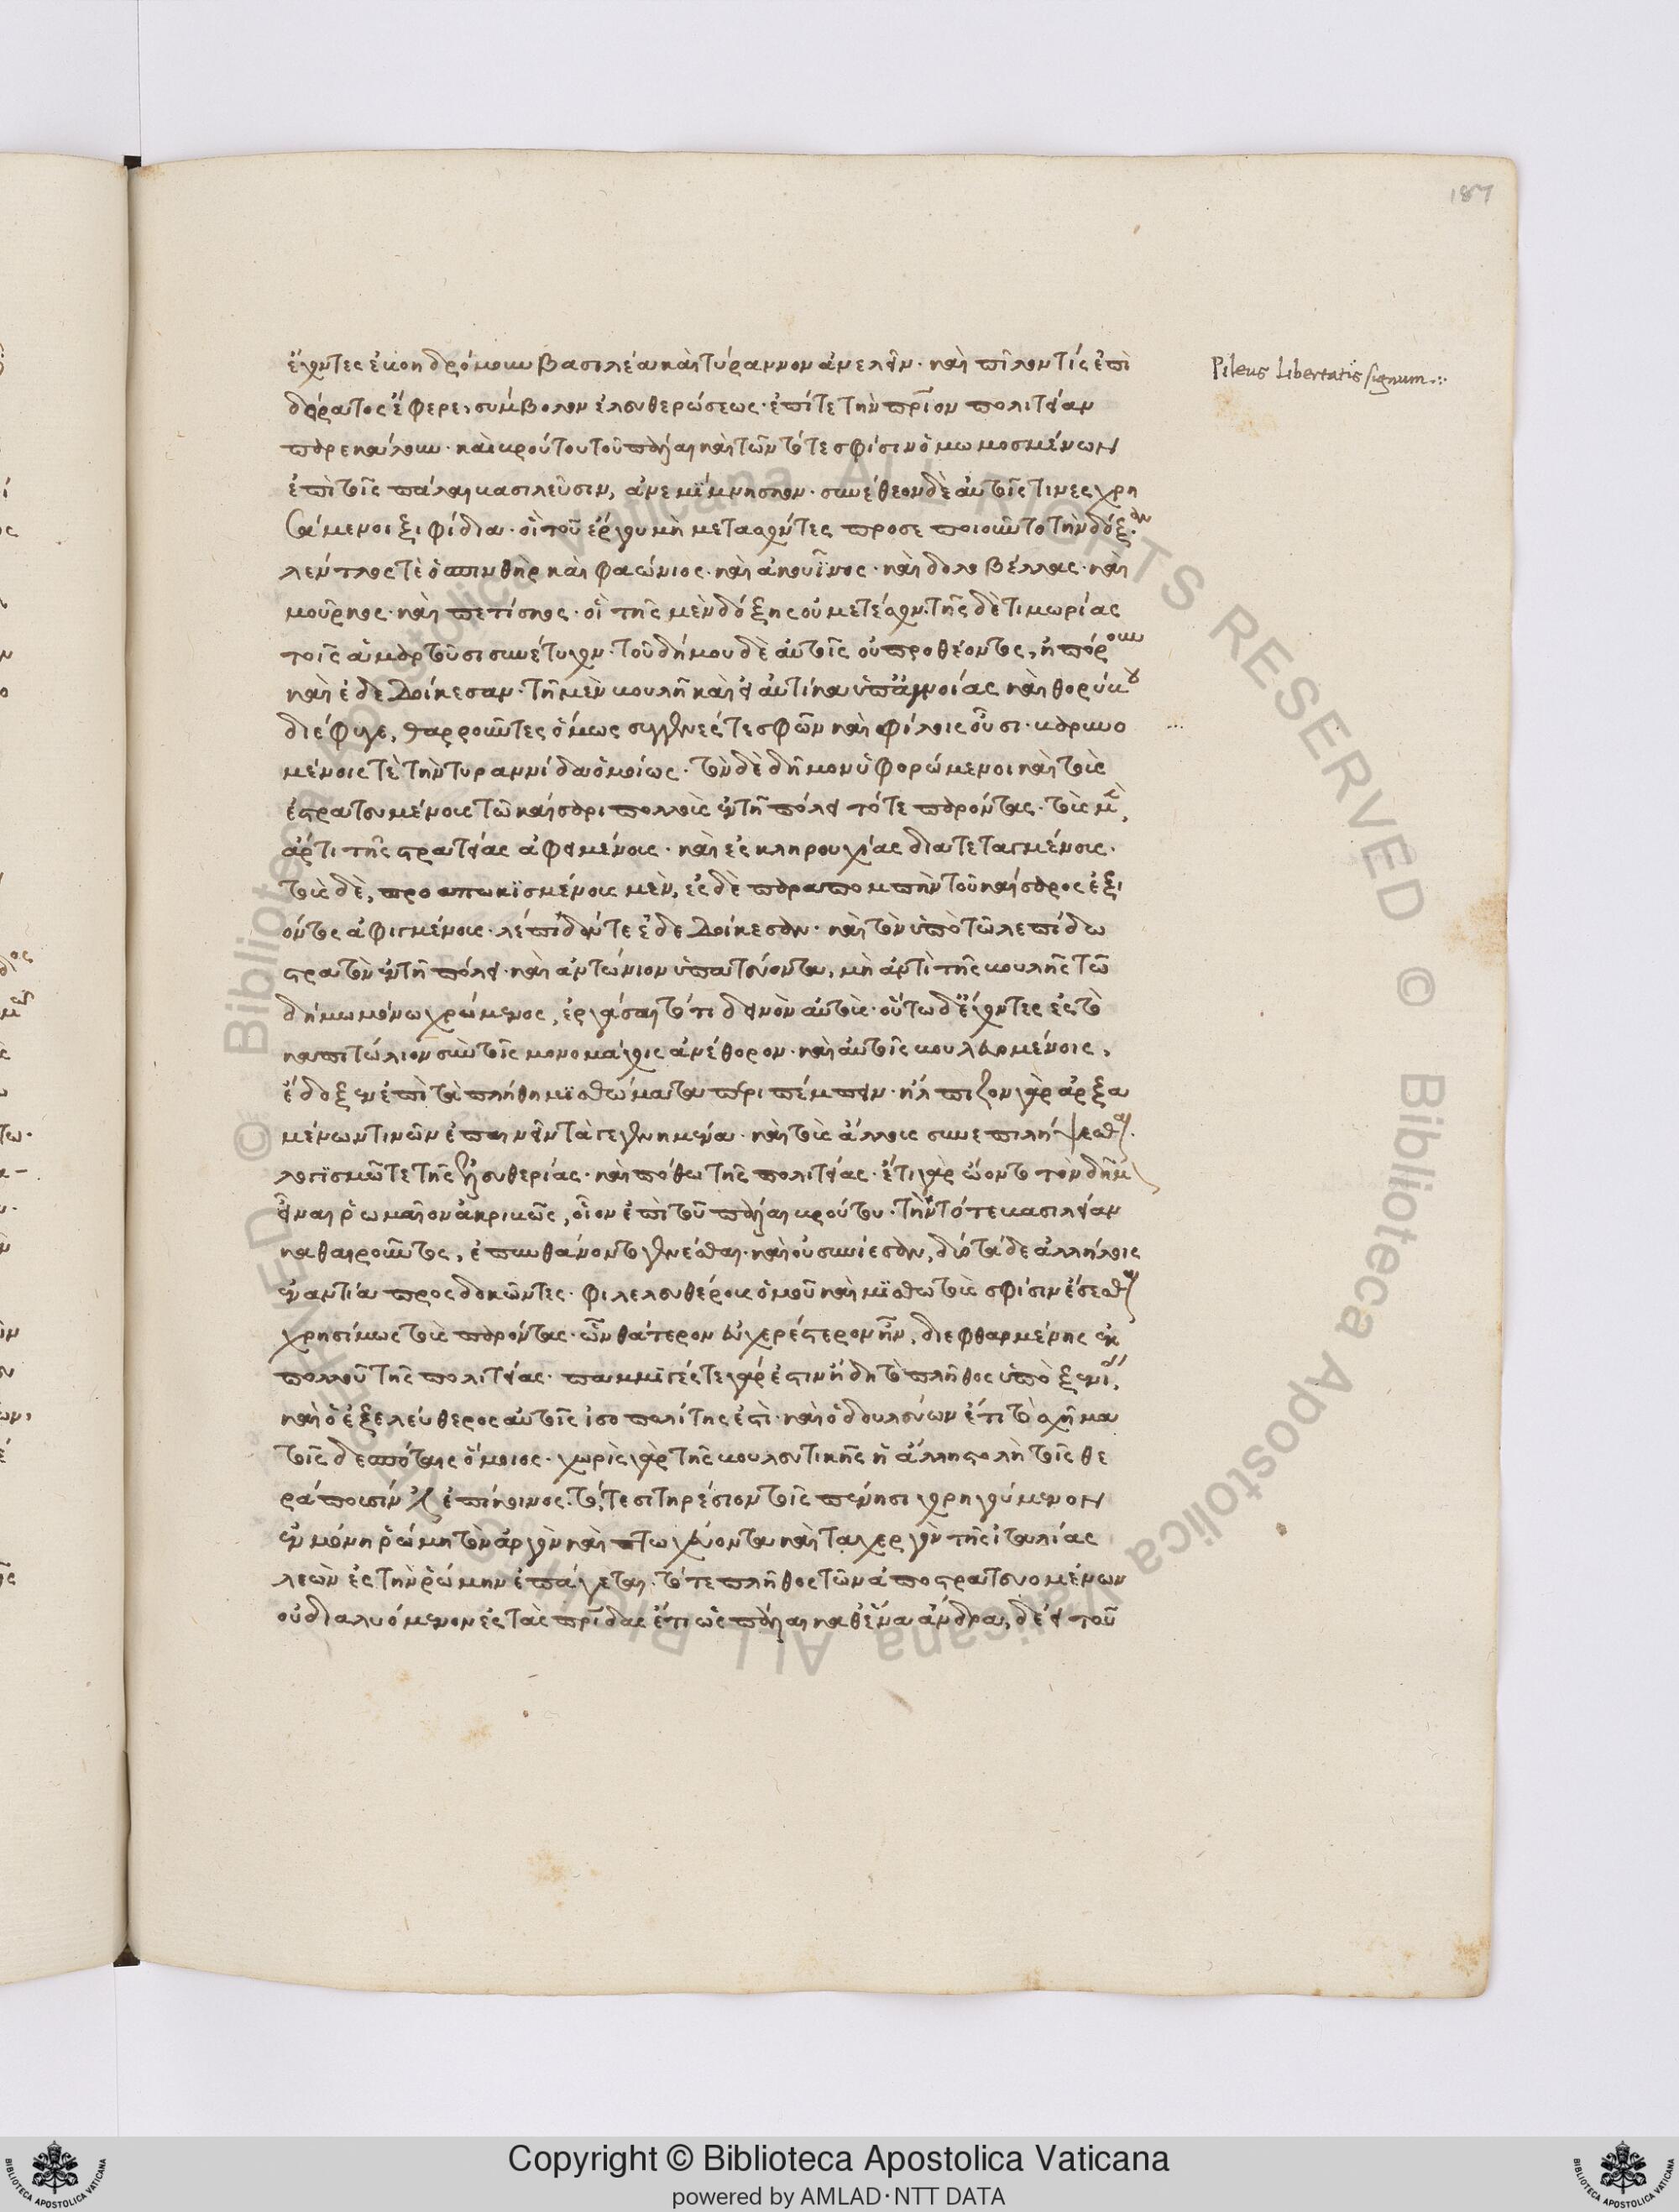 187
Pileus Libertatis signum
ἔχοντες ἐβοηδρόμουν βασιλέα καὶ τύραννον ἀνελεῖν· καὶ πῖλον τίς ἐπὶ
δόρατος ἔφερε, σύμβολον ἐλευθερώσεως· ἐπί τε τὴν πάτριον πολιτείαν
παρεκάλουν· καὶ βρούτου τοῦ πάλαι καὶ τῶν τότε σφίσιν ὀμωμοσμένων
ἐπὶ τοῖς πάλαι βασιλεῦσιν, ἀνεμίμνησκον· συνέθεον δὲ αὐτοῖς τινες χρη
σάμενοι ξιφίδια· οἳ τοῦ ἔργου μὴ μετασχόντες προσεποιοῦντο τὴν δόξαν·
λέντλος τὲ ὁ σπινθὴρ καὶ φαώνιος· καὶ ἀκουῖνος· καὶ δολοβέλλας· καὶ
μοῦρκος· καὶ πετίσκος· οἳ τῆς μὲν δόξης οὐ μετέσχον· τῆς δὲ τιμωρίας
τοῖς ἁμαρτοῦσι συνέτυχον· τοῦ δήμου δὲ αὐτοῖς οὐ προθέοντος, ἠπόρουν
καὶ ἐδεδοίκεσαν· τῇ μὲν βουλῇ καὶ εἰ αὐτίκα ὑπ' ἀγνοίας καὶ θορύβου
διέφυγε, θαρροῦντες ὅμως συγγενέσι τε σφῶν καὶ φίλοις οὖσι· βαρυνο
μένοις τὲ τὴν τυραννίδα ὁμοίως· τὸν δὲ δῆμον ὑφορώμενοι καὶ τοὺς
ἐστρατευμένους τῶ καίσαρι πολλοὺς ἐν τῇ πόλει τότε παρόντας· τοὺς μὲν,
ἄρτι τῆς στρατείας ἀφειμένους· καὶ ἐς κληρουχίας διατεταγμένους·
τοὺς δὲ, προαπωκισμένους μὲν, ἐς δὲ παραπομπὴν τοῦ καίσαρος ἐξι
όντος ἀφιγμένους· λέπιδόν τε ἐδεδοίκεσαν· καὶ τὸν ὑπὸ τῶ λεπίδω
στρατὸν ἐν τῇ πόλει· καὶ ἀντώνιον ὑπατεύοντα, μὴ ἀντὶ τῆς βουλῆς τῶ
δήμω μόνω χρώμενος, ἐργάσαιτό τι δεινὸν αὐτοὺς· οὕτω δ' ἔχοντες ἐς τὸ
καπιτώλιον σὺν τοῖς μονομάχοις ἀνέθορον· καὶ αὐτοῖς βουλευομένοις,
ἔδοξεν ἐπὶ τὰ πλήθη μισθώματα περιπέμπειν· ἤλπιζον γὰρ ἀρξα
μένων τινῶν ἐπαινεῖν τὰ γεγενημένα· καὶ τοὺς ἄλλους συνεπιλήψεσθαι·
λογισμῶ τε τῆς ἐλευθερίας· καὶ πόθω τῆς πολιτείας· ἔτι γὰρ ὤοντο τὸν δῆμον
εἶναι ῥωμαῖον ἀκριβῶς, οἷον ἐπὶ τοῦ πάλαι βρούτου· τὴν τότε βασιλείαν
καθαιροῦντος, ἐπυνθάνοντο γενέσθαι· καὶ οὐ συνίεσαν, δύο τάδε ἀλλήλοις
ἐναντία προσδοκῶντες· φιλελευθέρους ὁμοῦ καὶ μισθωτοὺς σφίσιν ἔσεσθαι
χρησίμως τοὺς παρόντας· ὧν θάτερον εὐχερέστερον ἦν, διεφθαρμένης ἐκ
πολλοῦ τῆς πολιτείας· παμμιγές τε γάρ ἐστιν ἤδη τὸ πλῆθος ὑπὸ ξενίας,
καὶ ὁ ἐξελεύθερος αὐτοῖς ἰσοπολίτης ἐστὶ· καὶ ὁ δουλεύων ἔτι τὸ σχῆμα
τοῖς δεσπόταις ὅμοιος· χωρὶς γὰρ τῆς βουλευτικῆς ἡ ἄλλη στολὴ τοῖς θε
ράπουσίν ἐστὶν ἐπίκοινος· τό, τε σιτηρέσιον τοῖς πένησι χορηγούμενον
ἐν μόνη ῥώμη τὸν ἀργὸν καὶ πτωχεύοντα καὶ ταχυεργὸν τῆς ἰταλίας
λεὼν ἐς τὴν ῥώμην ἐπάγεται· τό τε πλῆθος τῶν ἀποστρατευομένων
οὐ διαλυόμενον ἐς τὰς πατρίδας ἔτι ὡς πάλαι καθ' ἕνα ἄνδρα, δέει τοῦ
Copyright © Biblioteca Apostolica Vaticana
powered by AMLAD·NTT DATA